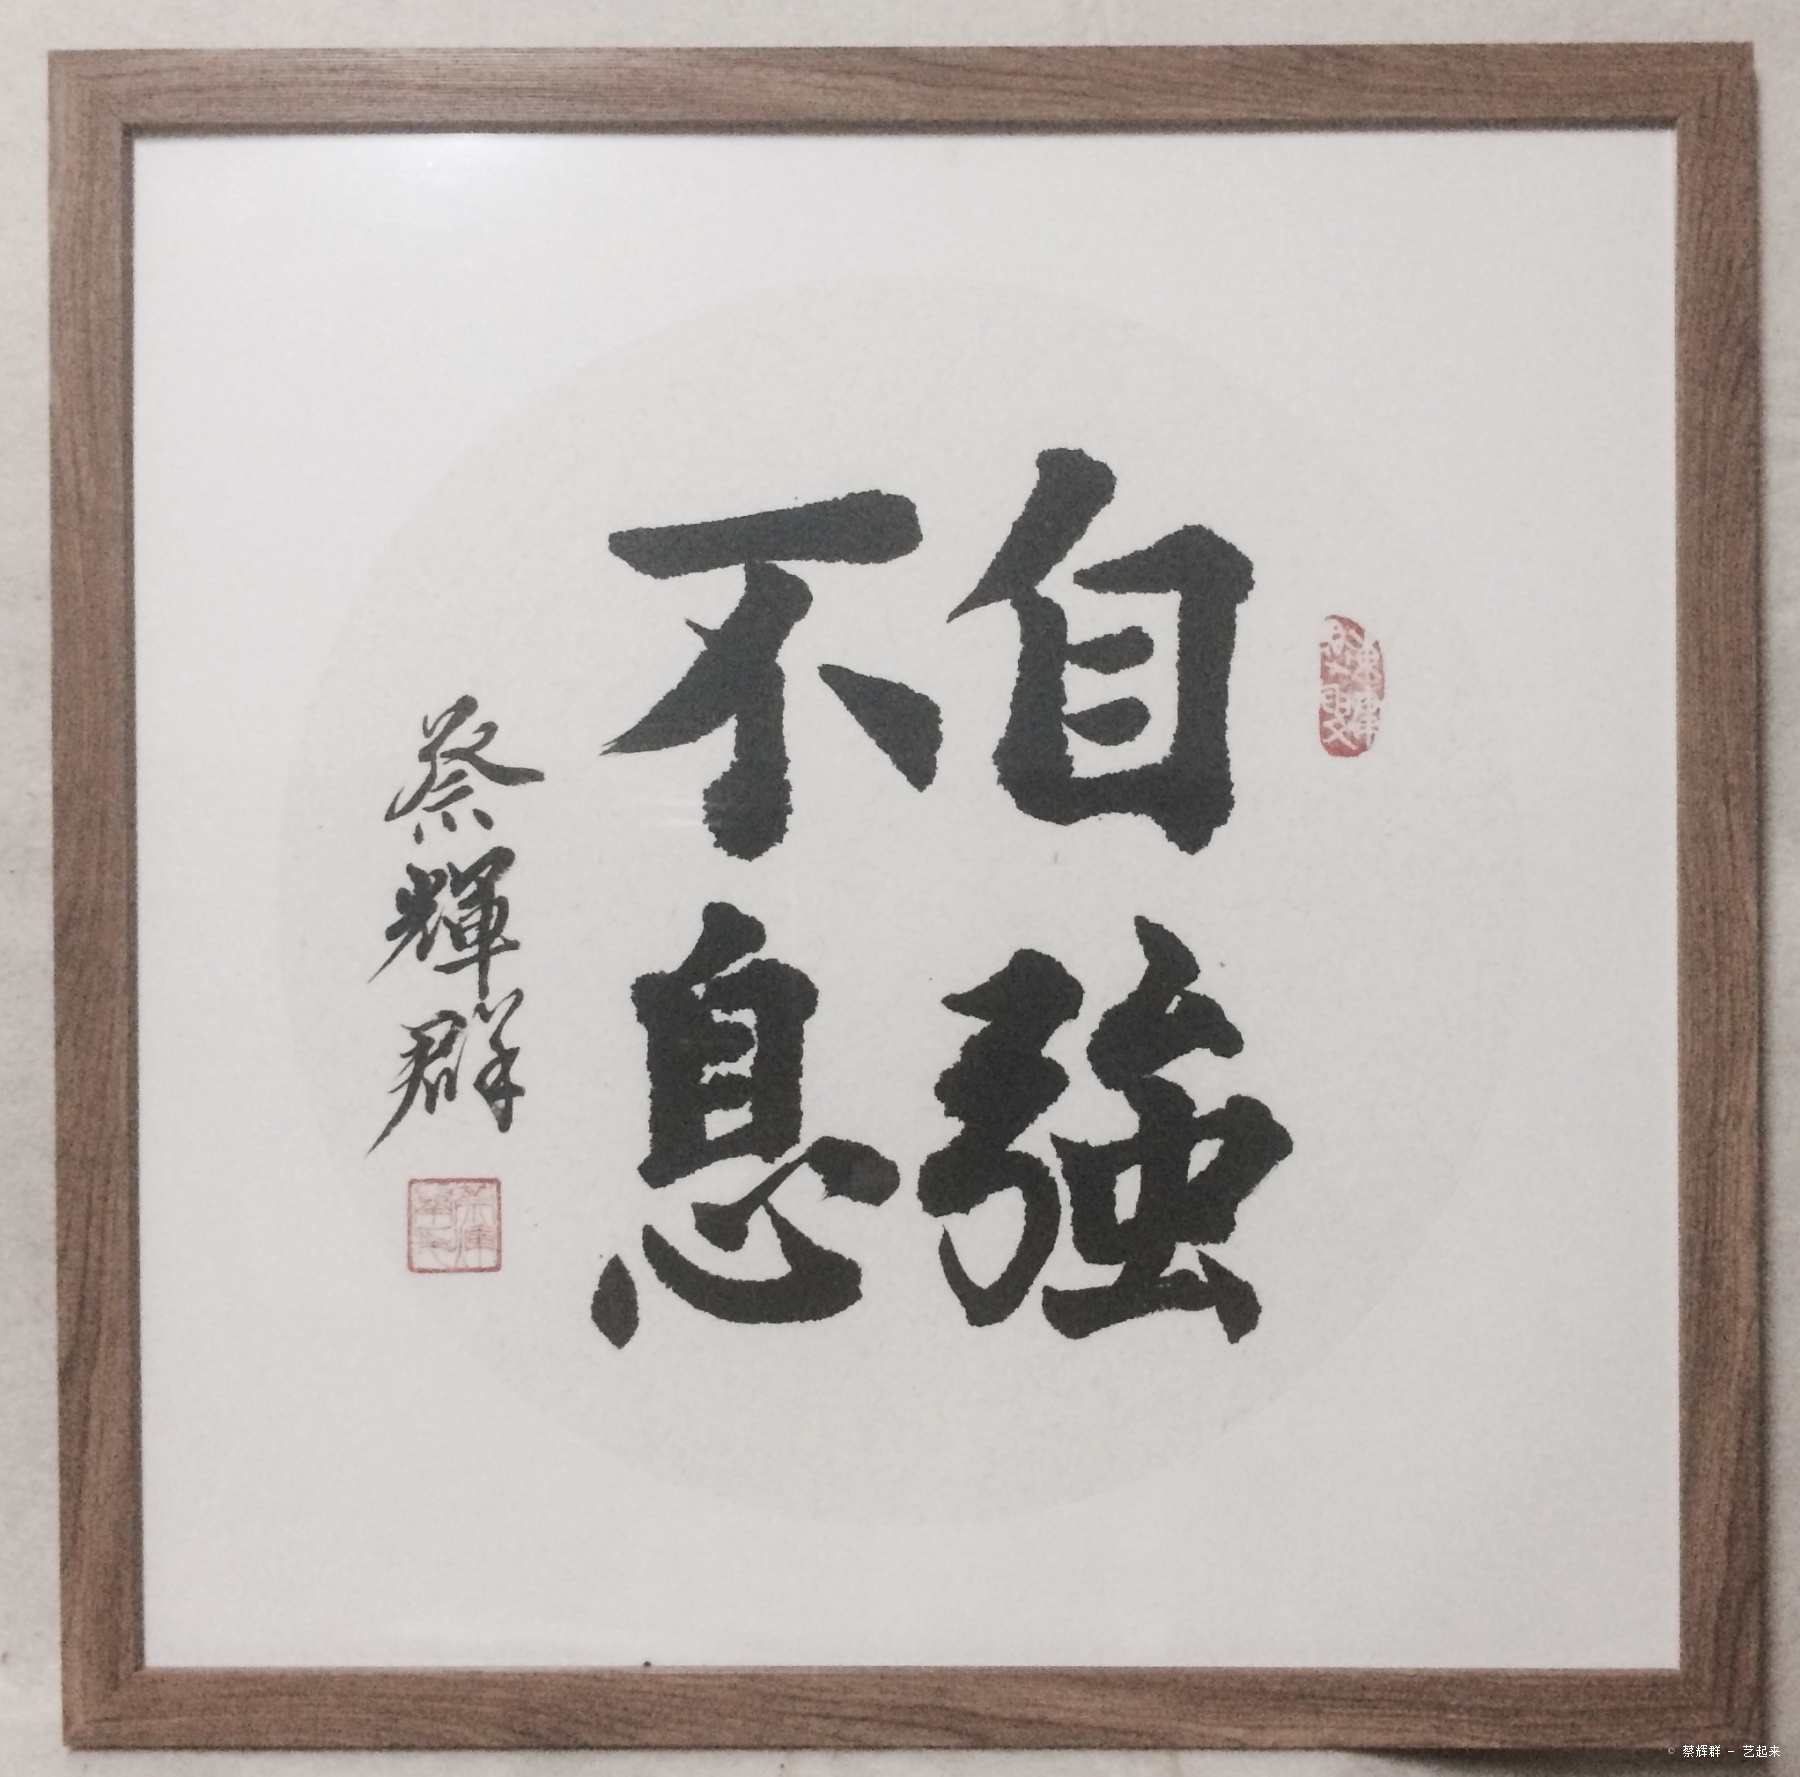 自強
不息
蔡輝群
© 蔡辉群 - 艺起来